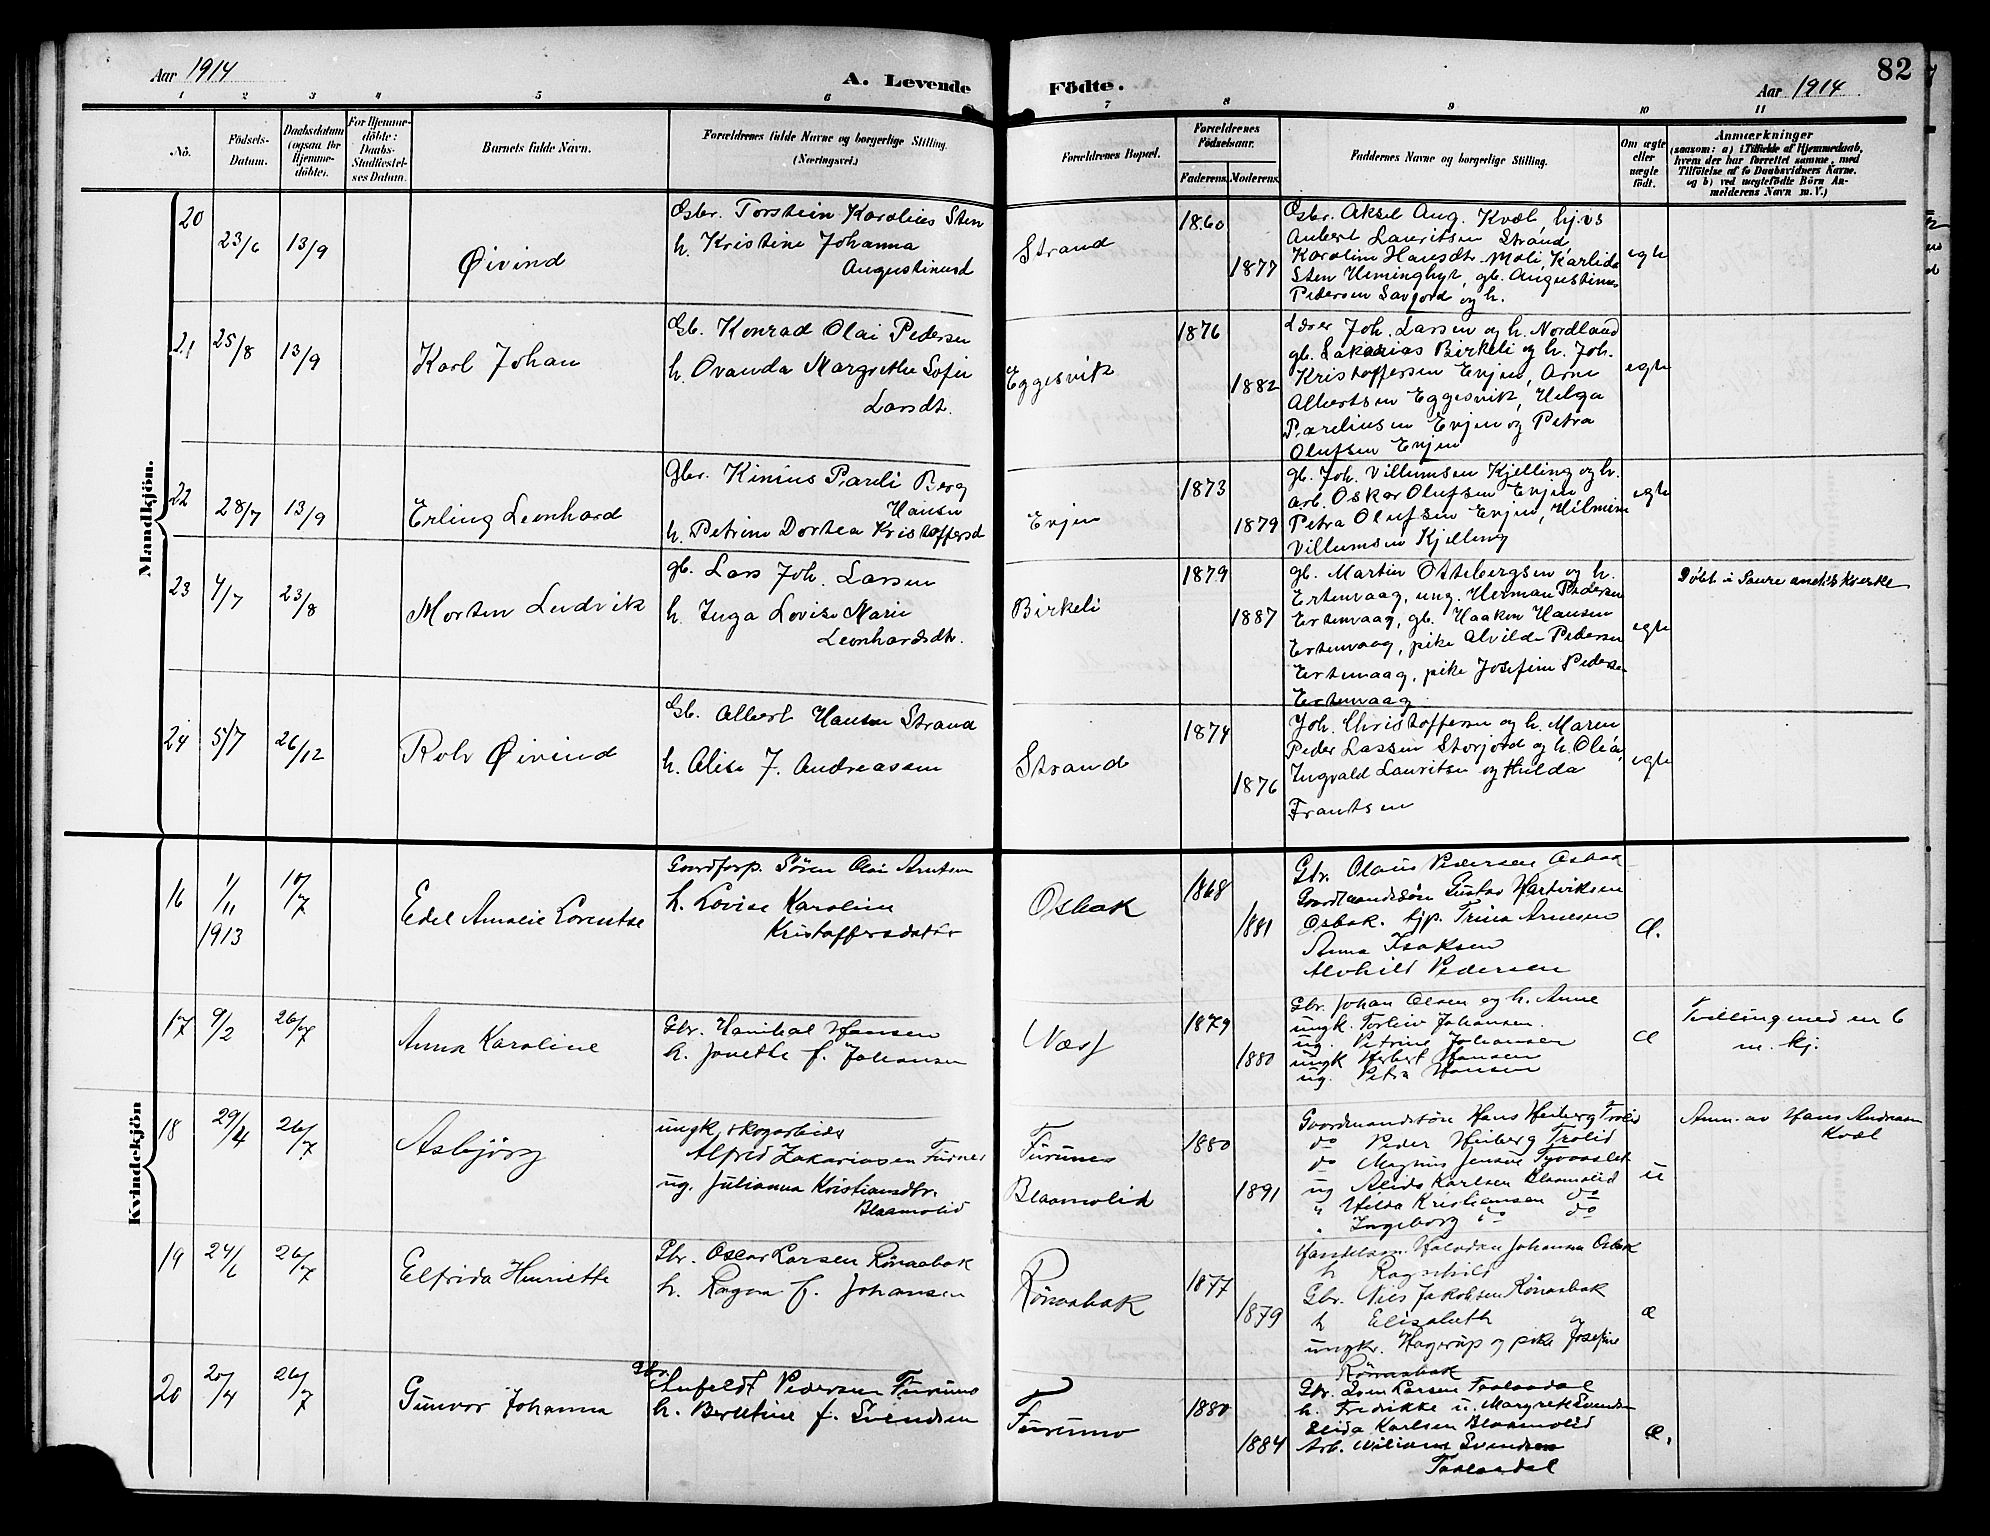 Aar 1914
A. Levende
Födte.
Aar 1914
82
1 2 3 4 5 6 7 8 9 10 11
No.
Födsels-
Datum.
Daabsdatum
(ogsaa for
Hjemme-
döbte).
For Hjemme-
döbte:
Daabs-
Stadfæstel-
ses Datum.
Barnets fulde Navn.
Forældrenes fulde Navne og borgerlige Stilling.
(Næringsvei.)
Forældrenes Bopæl.
Forældrenes
Födselsaar.
Faderens.
Moderens.
Faddernes Navne og borgerlige Stilling.
Om ægte
eller
uægte
födt.
Anmærkninger
(saasom: a) i Tilfælde af Hjemmedaab,
hvem der har forrettet samme, med
Tilföielse af to Daabsvidners Navne.
og b) ved uægtefödte Börn An-
melderens Navn m. V.)
Mandkjön.
20
23/6
13/9
Øivind
Gsbr. Torstein Karolius Sten
h. Kristine Johanna
Augustinusd
Strand
1860
1877
Gsbr. Aksel Aug. Kvæl, hjvs
Aubert Lauritsen Strand,
Karoline Hansdtr. Moli, Karlida
Sten Heminghyt, gb. Augustinus
Pedersen Savjord og h.
egte
21
25/8
13/9
Karl Johan
Gb. Konrad Olai Pedersen
h. Ovanda Margrethe Sofie
Larsdt.
Eggesvik
1876
1882
Lærer Joh. Larsen og h. Nordland
gb. Sakarias Birkeli og h. Joh.
Kristoffersen Evjen, Arne
Albertsen Eggesvik, Helga
Pareliusen Evjen og Petra
Olufsen Evjen
egte
22
28/7
13/9
Erling Leonhard
Gbr. Kinius Pareli Berg
Hansen
h. Petrine Dortea Kristoffersd
Evjen
1873
1879
gb. Joh. Villumsen Kjelling og h.
arb. Oskar Olufsen Evjen
Petra Olufsen Evjen, Hilmine
Villumsen Kjelling
egte
23
4/7
23/8
Morten Ludvik
gb. Lars Joh. Larsen
h. Inga Lovise Marie
Leonhardsdtr.
Birkeli
1879
1887
gb. Martin Ottebergsen og h.
Ertenvaag, ung. Herman Pedersen
Ertenvaag, gb. Haakon Hansen
Ertenvaag, pike Alvilde Pedersen
Ertenvaag, pike Josefine Pedersen
Ertenvaag
egte
Döbt i Saure kirke
24
5/7
26/12
Rolv Øivind
Gb. Albert Hansen Strand
h. Alise J. Andreassen
Strand
1874
1876
Joh. Christoffersen og h. Maren
Peder Lassen Storjord og h. Oléa,
Ingvald Lauritsen og Hulda
Frantsen
egte
Kvindekjön
16
1/11
1913
10/7
Edel Amalie Lorentse
Gaardforp. Sören Olai Arntsen
h. Lovise Karoline
Kristoffersdatter
Osbak
1868
1881
Gbr. Olaus Pedersen Osbak
Gaardmandssön Gustav Hartviksen
Osbak. tjp. Trina Arnesen
Anna Isaksen
Alvhild Pedersen
Æ.
17
9/2
26/7
Anna Karoline
Gbr. Hanibal Hansen
h. Jonette f. Johansen
Værf
1879
1880
Gbr. Johan Olsen og h. Anne
ungk. Torleiv Johansen.
ug. Petrine Johansen
ungk Herbert Hansen
ug. Petra Hansen
Æ
Tvilling med nr 6
m. kj.
18
29/4
26/7
Asbjörg
ungk. skogarbeider
Alfred Zakariasen Furunes
ug. Julianna Kristiansdtr.
Blaamolid
Furunes
Blaamolid
1880
1891
Gaardmandssön Hans Heiberg Trolid
do Peder Heiberg Trolid
do Magnus Jensen
ug Alida Karlsen Blaamolid
" Hilda Kristiansen do
" Ingeborg do do
u
Anm. av Hans Andreasen
Kvæl
19
24/6
26/7
Elfrida Henriette
Gbr. Oscar Larsen Rönaabak
h. Ragna f. Johansen
Rönaabak
1877
1879
Handelsm. Halvdan Johansen Osbak
h Ragnhild
Gbr. Nils Jakobsen Rönaabak
h Elisabeth og
ungkr. Hagerup og pike Josefine
Rönaabak
æ
20
20/4
26/7
Gunvor Johanna
Gbr. Anfeldt Pedersen Furumo
h. Berntine f. Svendsen
Furumo
1880
1884
Gbr. Sven Larsen Taalardal
h. Fredrikke u. Margrete Svendsen
Elida Karlsen Blaamolid
Arb. Wiliam Svendsen
Taalardal
Æ.